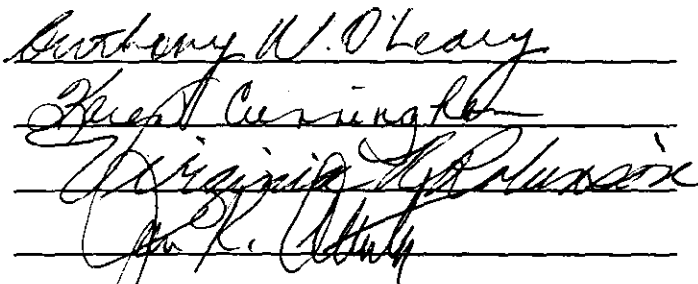 Anthony W. O'Leary
Karen Cunningham
Virginia R. Robinson
K.